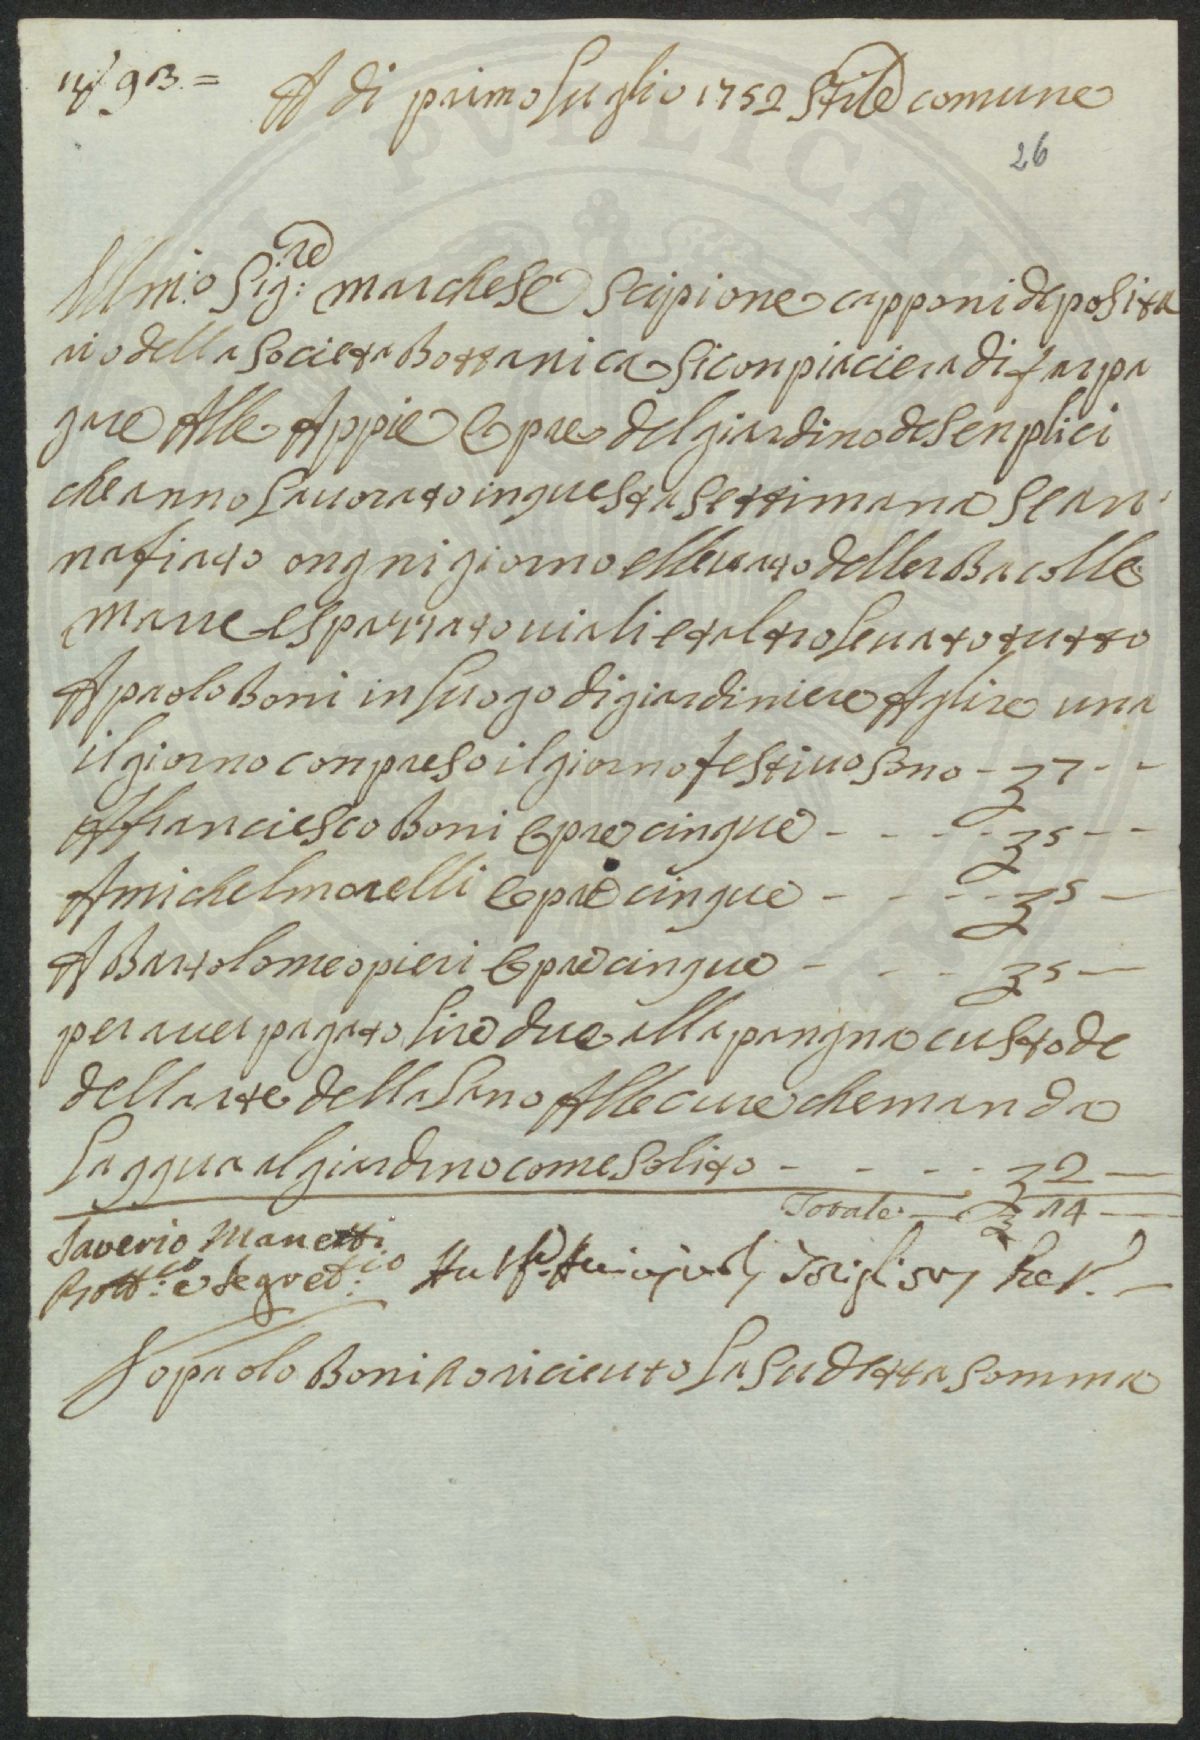 N.º 93. =
A di primo Luglio 1752 Stile comune
26
Illmi:o Sig:re marchese Scipione capponi deposita
rio della Societa Bottanica Si conpiaciera di far pa
gare Alle Appie Opre del giardino de Senplici
che anno Lauorato in questa Settimana Se an
nafiato ongni giorno ellevato delle Bacolle
marre e Spazzato uiali et altro Leuato tutto
A paolo Boni in Luogo di giardiniere A lire una
il giorno conpreso il giorno festiuo Sono - £ 7 - -
A franciesco Boni Opre cinque - - - - £ 5 - -
A michel morelli Opre cinque - - - - £ 5 -
A Bartolomeo pieri Opre cinque - - - £ 5 -
per auer pagato Lire due alla pangna custode
dell arte della Lana Alle cure che manda
Laqqua al giardino come Solito - - - - £ 2 -
Totale - £ 14 -
Saverio Manetti
Prott:co e Segret:rio
Io paolo Boni o riceuto La Sudetta Somma